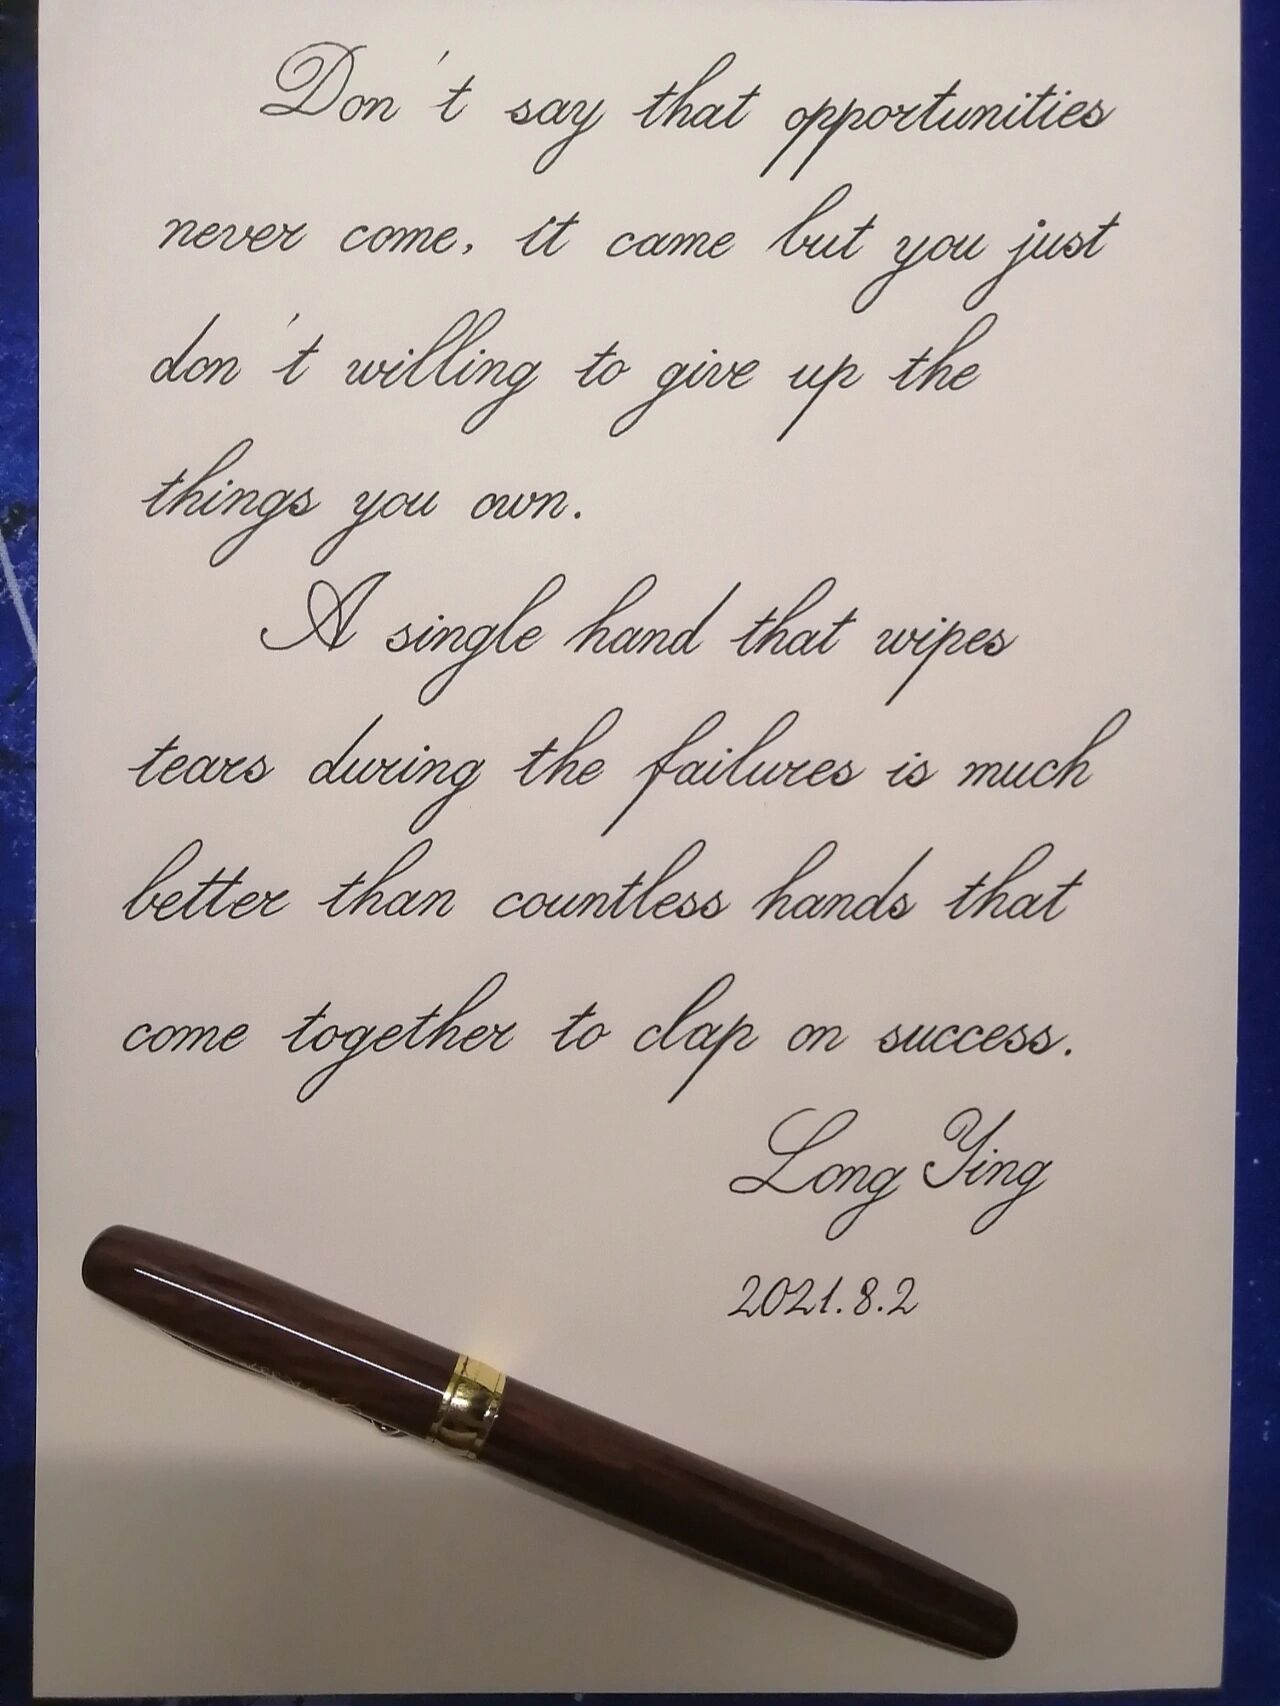 Don't say that opportunities
never come, it came but you just
don't willing to give up the
things you own.
A single hand that wipes
tears during the failures is much
better than countless hands that
come together to clap on success.
Long Ying
2021.8.2